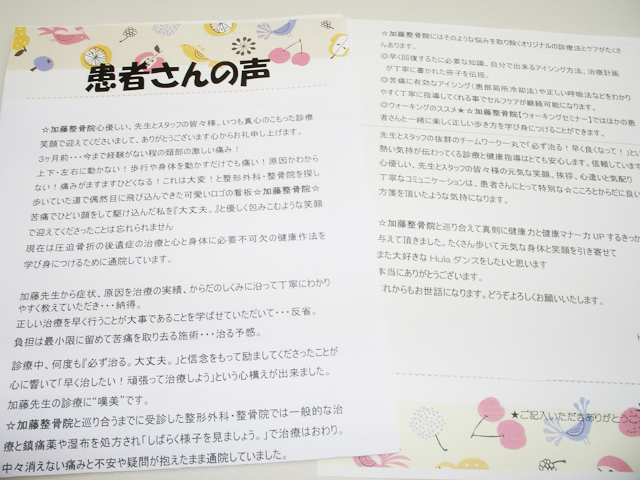 患者さんの声
☆加藤整骨院心優しい、先生とスタッフの皆々様。いつも真心のこもった診療
笑顔で迎えてくださいまして、ありがとうございます心からお礼申し上げます。
3ヶ月前・・・今まで経験がない程の頸部の激しい痛み!
上下・左右に動かない!歩行や身体を動かすだけでも痛い!原因かわから
ない!痛みがますますひどくなる!これは大変!と整形外科・整骨院を探し
歩いていた道で偶然目に飛び込んできた可愛いロゴの看板☆加藤整骨院☆
苦痛でひどい顔をして駆け込んだ私を『大丈夫。』と優しく包みこむような笑顔
で迎えてくださったことは忘れられません
現在は圧迫骨折の後遺症の治療と心と身体に必要不可欠の健康作法を
学び身につけるために通院しています。
加藤先生から症状、原因を治療の実績、からだのしくみに沿って丁寧にわかり
やすく教えていただき・・・納得。
正しい治療を早く行うことが大事であることを学ばせていただいて・・・反省。
負担は最小限に留めて苦痛を取り去る施術・・・治る予感。
診療中、何度も『必ず治る。大丈夫。』と信念をもって励ましてくださったことが
心に響いて「早く治したい!頑張って治療しよう」という心構えが出来ました。
加藤先生の診療に“嘆美”です。
☆加藤整骨院と巡り合うまでに受診した整形外科・整骨院では一般的な治
療と鎮痛薬や湿布を処方され「しばらく様子を見ましょう。」で治療はおわり。
中々消えない痛みと不安や疑問が抱えたまま通院していました。
☆加藤整骨院にはそのような悩みを取り除くオリジナルの診療法とケアがたくさ
んあります。
◎早く回復するたに必要な知識。自分で出来るアイシング方法、治療計画
が丁寧に書かれた冊子を伝授。
◎苦痛に有効なアイシング(患部局所冷却法)や正しい呼吸法などをわかり
やすく丁寧に指導してくれる事でセルフケアが継続可能になります。
◎ウォーキングのススメ★☆加藤整骨院【ウォーキングセミナー】ではほかの患
者さんと一緒に楽しく正しい歩き方を学び身につけることができます。
先生とスタッフの抜群のチームワーク一丸で「必ず治る!早く良くなって!」とい
熱い気持が伝わってくる診療と健康指導はとても安心します。信頼しています
心優しい、先生とスタッフの皆々様の元気な笑顔、挨拶、心遣いと気配り
丁寧なコミュニケーションは、患者さんにとって特別な☆こころとからだに良い
方箋を頂いたような気持になります。
☆加藤整骨院と巡り合えて真剣に健康力と健康マナー力UPするきっか
与えて頂きました。たくさん歩いて元気な身体と笑顔を引き寄せて
また大好きなHulaダンスをしたいと思います
本当にありがとうございます。
これからもお世話になります。どうぞよろしくお願いいたします。
★ご記入いただきありがとうご